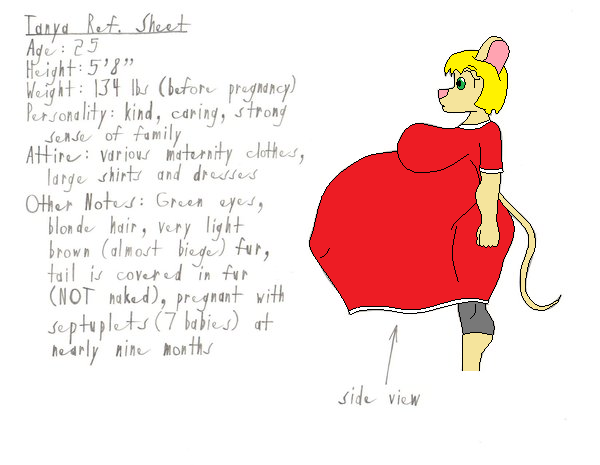 Tanya Ref. Sheet
Age: 25
Height: 5'8"
Weight: 134 lbs (before pregnancy)
Personality: kind, caring, strong
sense of family
Attire: various maternity clothes,
large shirts and dresses
Other Notes: Green eyes,
blonde hair, very light
brown (almost biege) fur,
tail is covered in fur
(NOT naked), pregnant with
septuplets (7 babies) at
nearly nine months
side view